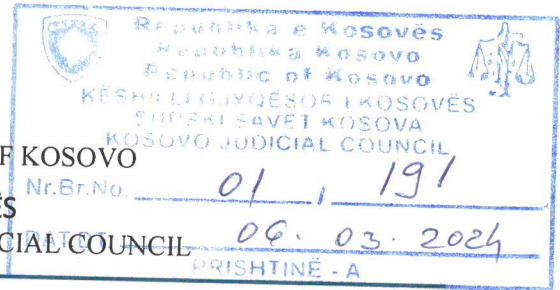 Republika e Kosovës
Republika Kosovo
Republic of Kosovo
KËSHILLI GJYQËSOR I KOSOVËS
SUDSKI SAVET KOSOVA
KOSOVO JUDICIAL COUNCIL
F KOSOVO
Nr.Br.No. 01 / 191
ËS
CIAL COUNCIL
06. 03. 2024
PRISHTINË - A